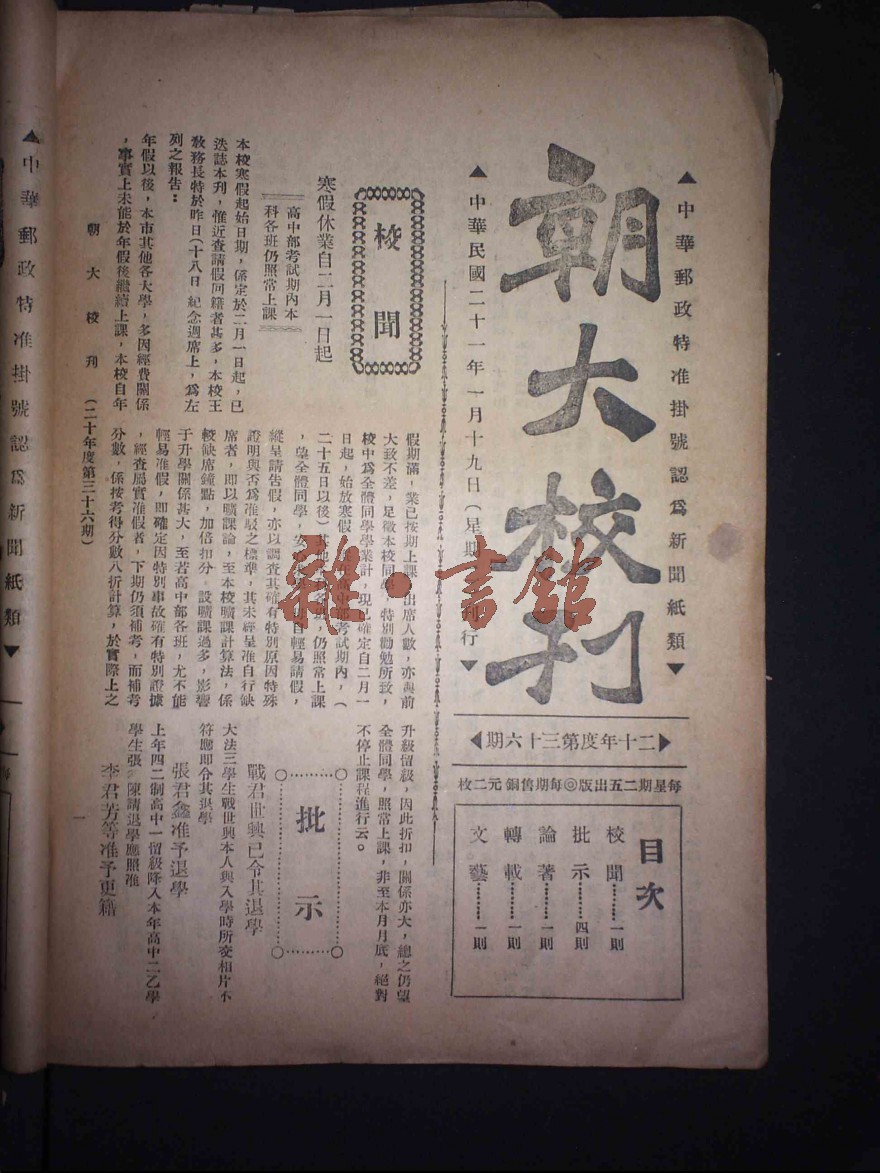 ▲中華郵政特准掛號認爲新聞紙類▼
朝大校刊
▲中華民國二十一年一月十九日（星期
刊行▼
▶二十年度第三十六期◀
每星期二五出版◎每期售銅元二枚
目次
校聞………一則
批示………四則
論著………一則
轉載………一則
文藝………一則
校聞
寒假休業自二月一日起
高中部考試期內本
科各班仍照常上課
本校寒假起始日期，係定於二月一日起，已
迭誌本刊，惟近查請假回籍者甚多，本校王
教務長特於昨日（十八日）紀念週席上，爲左
列之報告：
年假以後，本市其他各大學，多因經費關係
，事實上未能於年假後繼續上課，本校自年
假期滿，業已按期上課，出席人數，亦與前
大致不差，足徵本校同學，特別勤勉所致，
校中爲全體同學學業計，現已確定自二月一
日起，始放寒假，年高中部考試期內，（
二十五日以後）其他各班，仍照常上課
，望全體同學，安
自輕易請假，
縱呈請告假，亦以調查其確有特別原因特殊
證明與否爲准駁之標準，其未經呈准自行缺
席者，即以曠課論，至本校曠課計算法，係
較缺席鐘點，加倍扣分，設曠課過多，影響
于升學關係甚大，至若高中部各班，尤不能
輕易准假，即確定因特別事故確有特別證據
，經查屬實准假者，下期仍須補考，而補考
分數，係按考得分數八折計算，於實際上之
升級留級，因此折扣，關係亦大，總之仍望
全體同學，照常上課，非至本月月底，絕對
不停止課程進行云。
批示
戰君世興已令其退學
大法三學生戰世興本人與入學時所交相片不
符應即令其退學
張君鑫准予退學
上年四二制高中一留級降入本年高中二乙學
學生張 陳請退學應照准
李君芳等准予更籍
朝大校刊　（二十年度第三十六期）
一
▲中華郵政特准掛號認爲新聞紙類▼
每
雜·書館